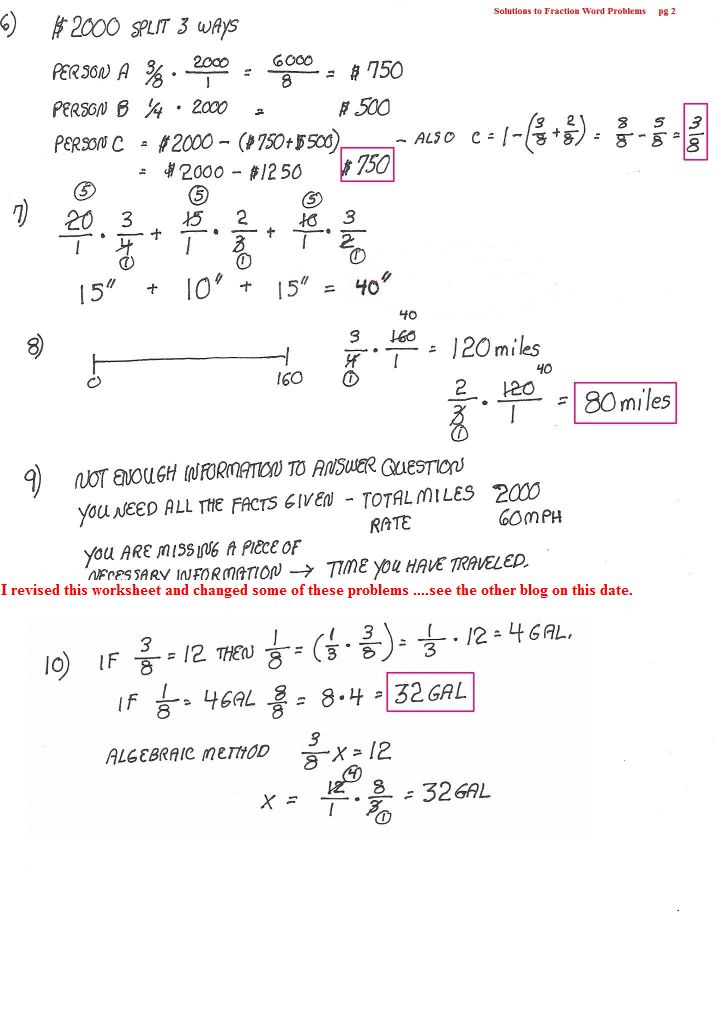 Solutions to Fraction Word Problems pg 2
6) $2000 SPLIT 3 WAYS
PERSON A 3/8 · 2000/1 = 6000/8 = $750
PERSON B 1/4 · 2000 = $500
PERSON C = $2000 - ($750+$500) - ALSO C = 1-(3/8+2/8) = 8/8 - 5/8 = 3/8
= $2000 - $1250 $750
7) 20/1 · 3/4 + 15/1 · 2/3 + 10/1 · 3/2
5 5 5
1 1 1
15" + 10" + 15" = 40"
8) 0 160 3/4 · 160/1 = 120 miles
40
1
2/3 · 120/1 = 80 miles
40
1
9) NOT ENOUGH INFORMATION TO ANSWER QUESTION
YOU NEED ALL THE FACTS GIVEN - TOTAL MILES 2000
RATE 60MPH
YOU ARE MISSING A PIECE OF
NECESSARY INFORMATION → TIME YOU HAVE TRAVELED.
I revised this worksheet and changed some of these problems ....see the other blog on this date.
10) IF 3/8 = 12 THEN 1/8 = (1/3 · 3/8) = 1/3 · 12 = 4 GAL.
IF 1/8 = 4GAL 8/8 = 8·4 = 32 GAL
ALGEBRAIC METHOD 3/8 X = 12
X = 12/1 · 8/3 = 32 GAL
4
1